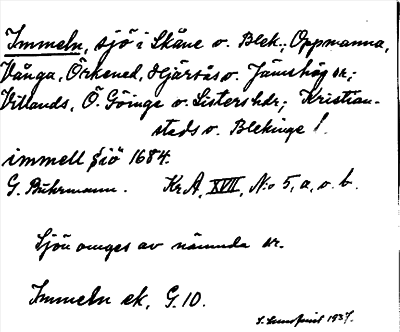 Immeln, sjö i Skåne o. Blek., Oppmanna,
Vånga, Örkened, Hjärsås o. Jämshög sr.;
Villands, Ö. Göinge o. Listers hdr; Kristian-
stads o. Blekinge l.
immell siö 1684.
G. Buhrmann. Kr A, XVII, N:o 5, a, o. b.
Sjön omges av nämnda sr.
Immeln ek. G.10.
1937.